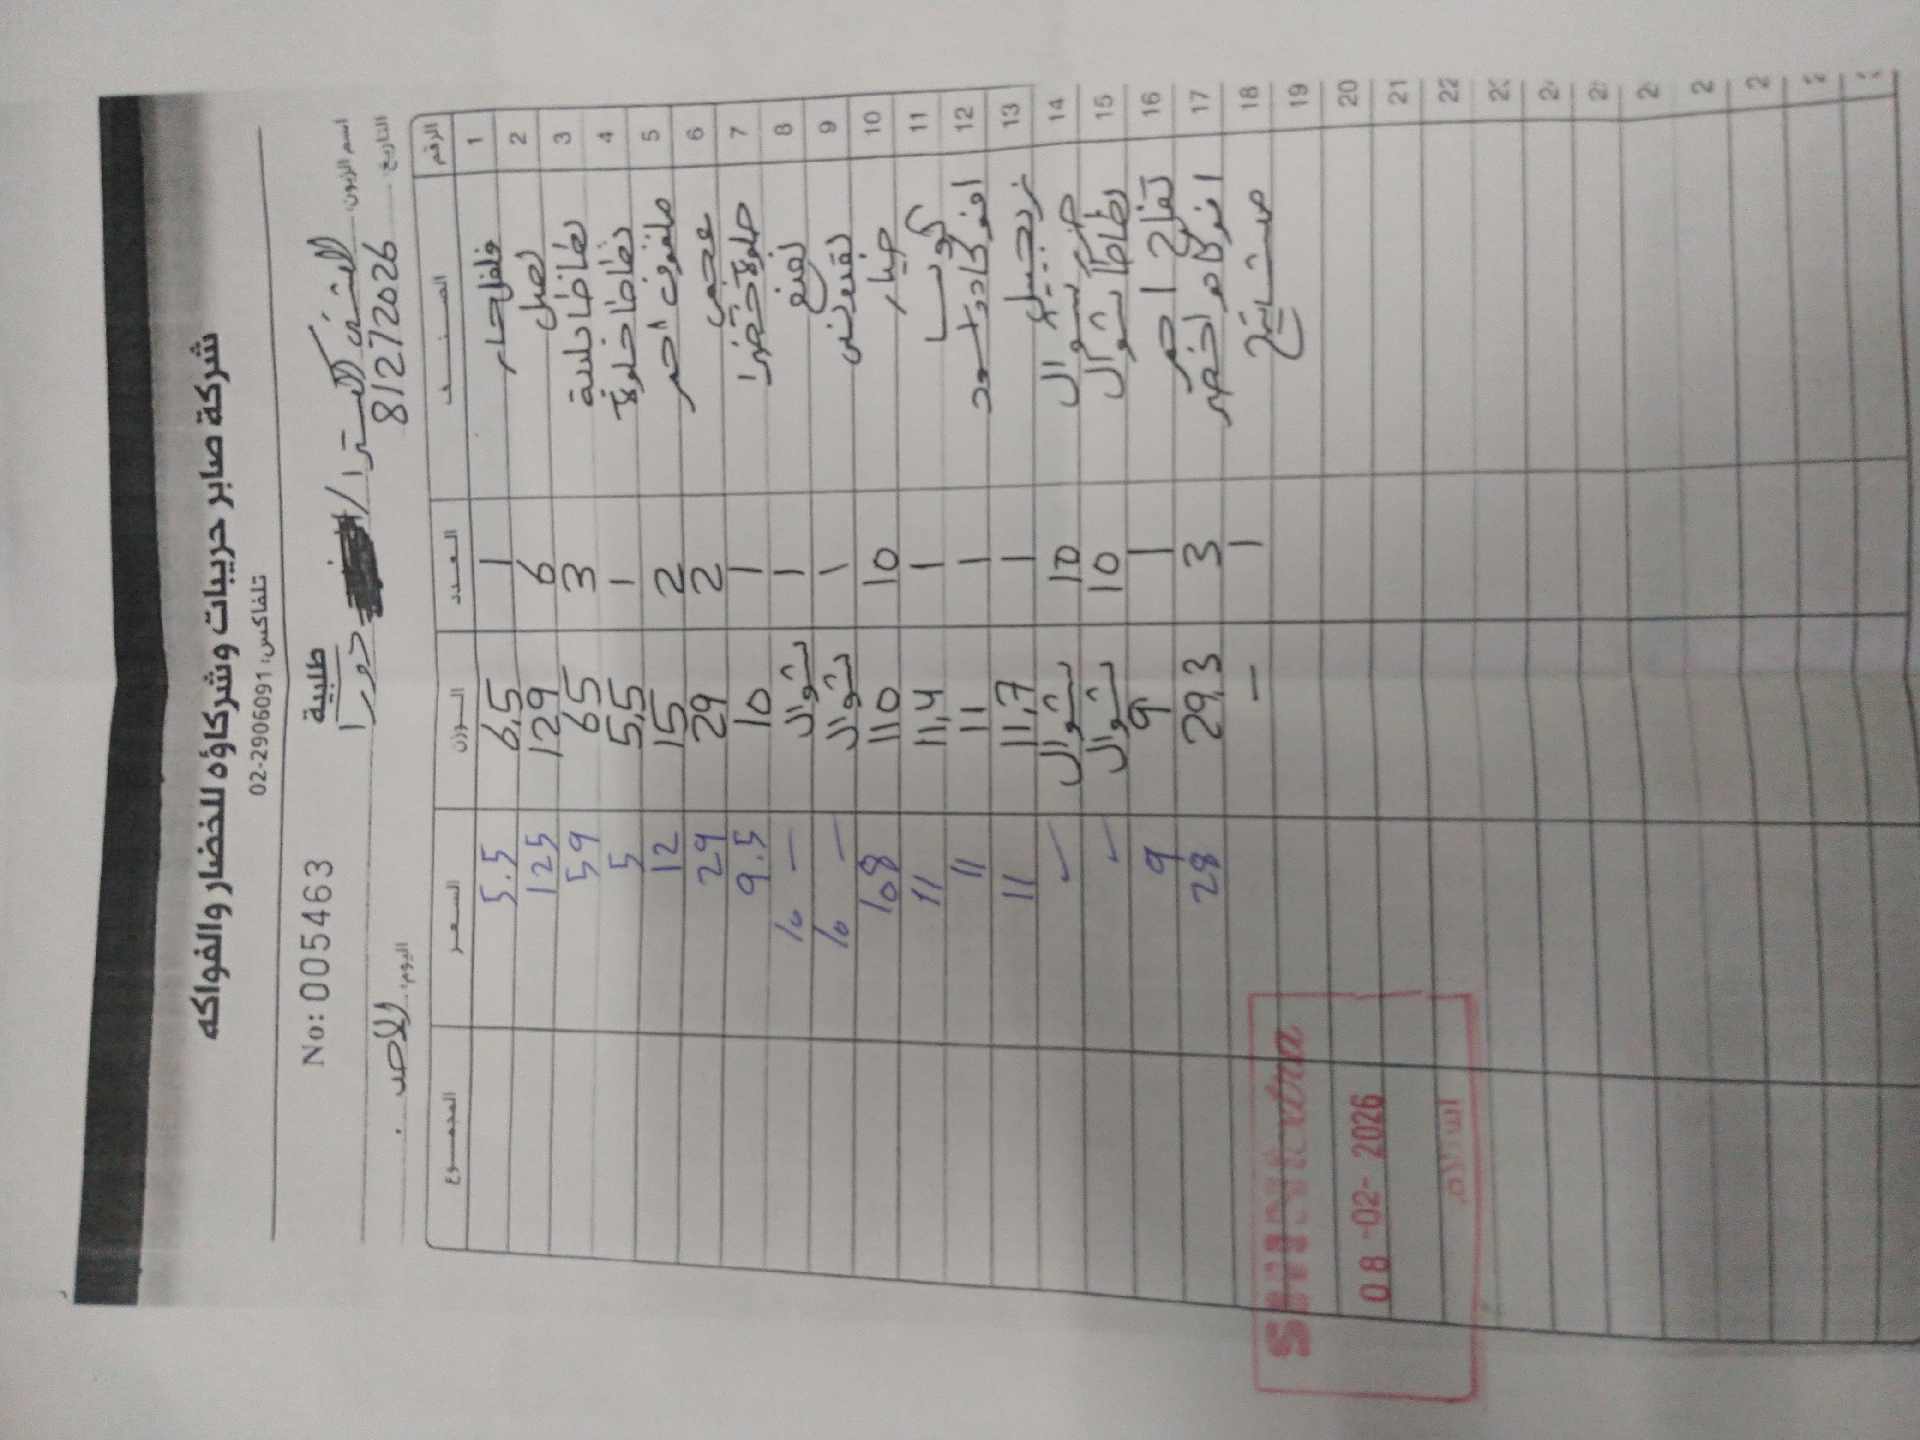 شركة صابر حريبات وشركاؤه للخضار والفواكه
تلفاكس: 02-2906091
طلبية
No: 005463
اسم الزبون الشني اكسترا / دورا
التاريخ 8/2/2026 اليوم: الاحد
الرقم الصنف العدد الوزن السعر المجموع
1 فلفل حار 1 6,5 5.5
2 بصل 6 129 125
3 بطاطا بلدية 3 65 59
4 بطاطا حلوة 1 5,5 5
5 ملفوف احمر 2 15 12
6 2 29 29
7 حلوة خضرا 1 10 9.5
8 نعنع 1 شوال 10 –
9 بقدونس 1 شوال 10 –
10 خيار 10 110 108
11 كوسا 1 11,4 11
12 افوكادو اسود 1 11 11
13 زنجبيل 1 11,7 11
14 شوال 10 شوال ✓
15 بطاطا شوال 10 شوال ✓
16 تفاح احمر 1 9 9
17 اخضر 3 29,3 28
18 1 –
19
20
21
22
SHINI extra
08-02-2026
استلام